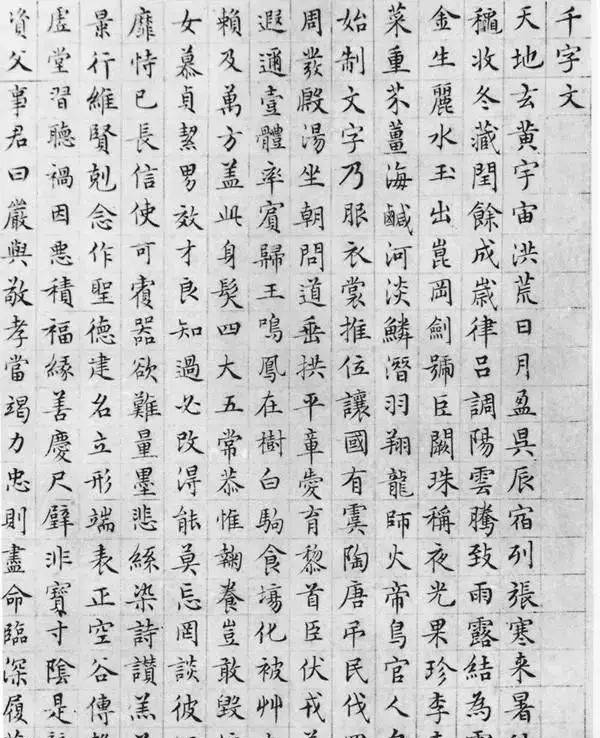 千字文
天地玄黄宇宙洪荒日月盈昃辰宿列張寒来暑
穐收冬藏閏餘成歳律吕調陽雲騰致雨露結為
金生麗水玉出崑岡劍號巨闕珠稱夜光果珍李
菜重芥薑海鹹河淡鱗潛羽翔龍師火帝鳥官人
始制文字乃服衣裳推位讓國有虞陶唐弔民伐
周發殷湯坐朝問道垂拱平章愛育黎首臣伏戎
遐邇壹體率賓歸王鳴鳳在樹白駒食場化被艸
賴及萬方盖此身髮四大五常恭惟鞠養豈敢毀
女慕貞潔男效才良知過必改得能莫忘罔談彼
靡恃己長信使可覆器欲難量墨悲絲染詩讃羔
景行維賢剋念作聖德建名立形端表正空谷傳
虛堂習聽禍因悪積福緣善慶尺璧非寶寸陰是
資父事君曰嚴與敬孝當竭力忠則盡命臨深履